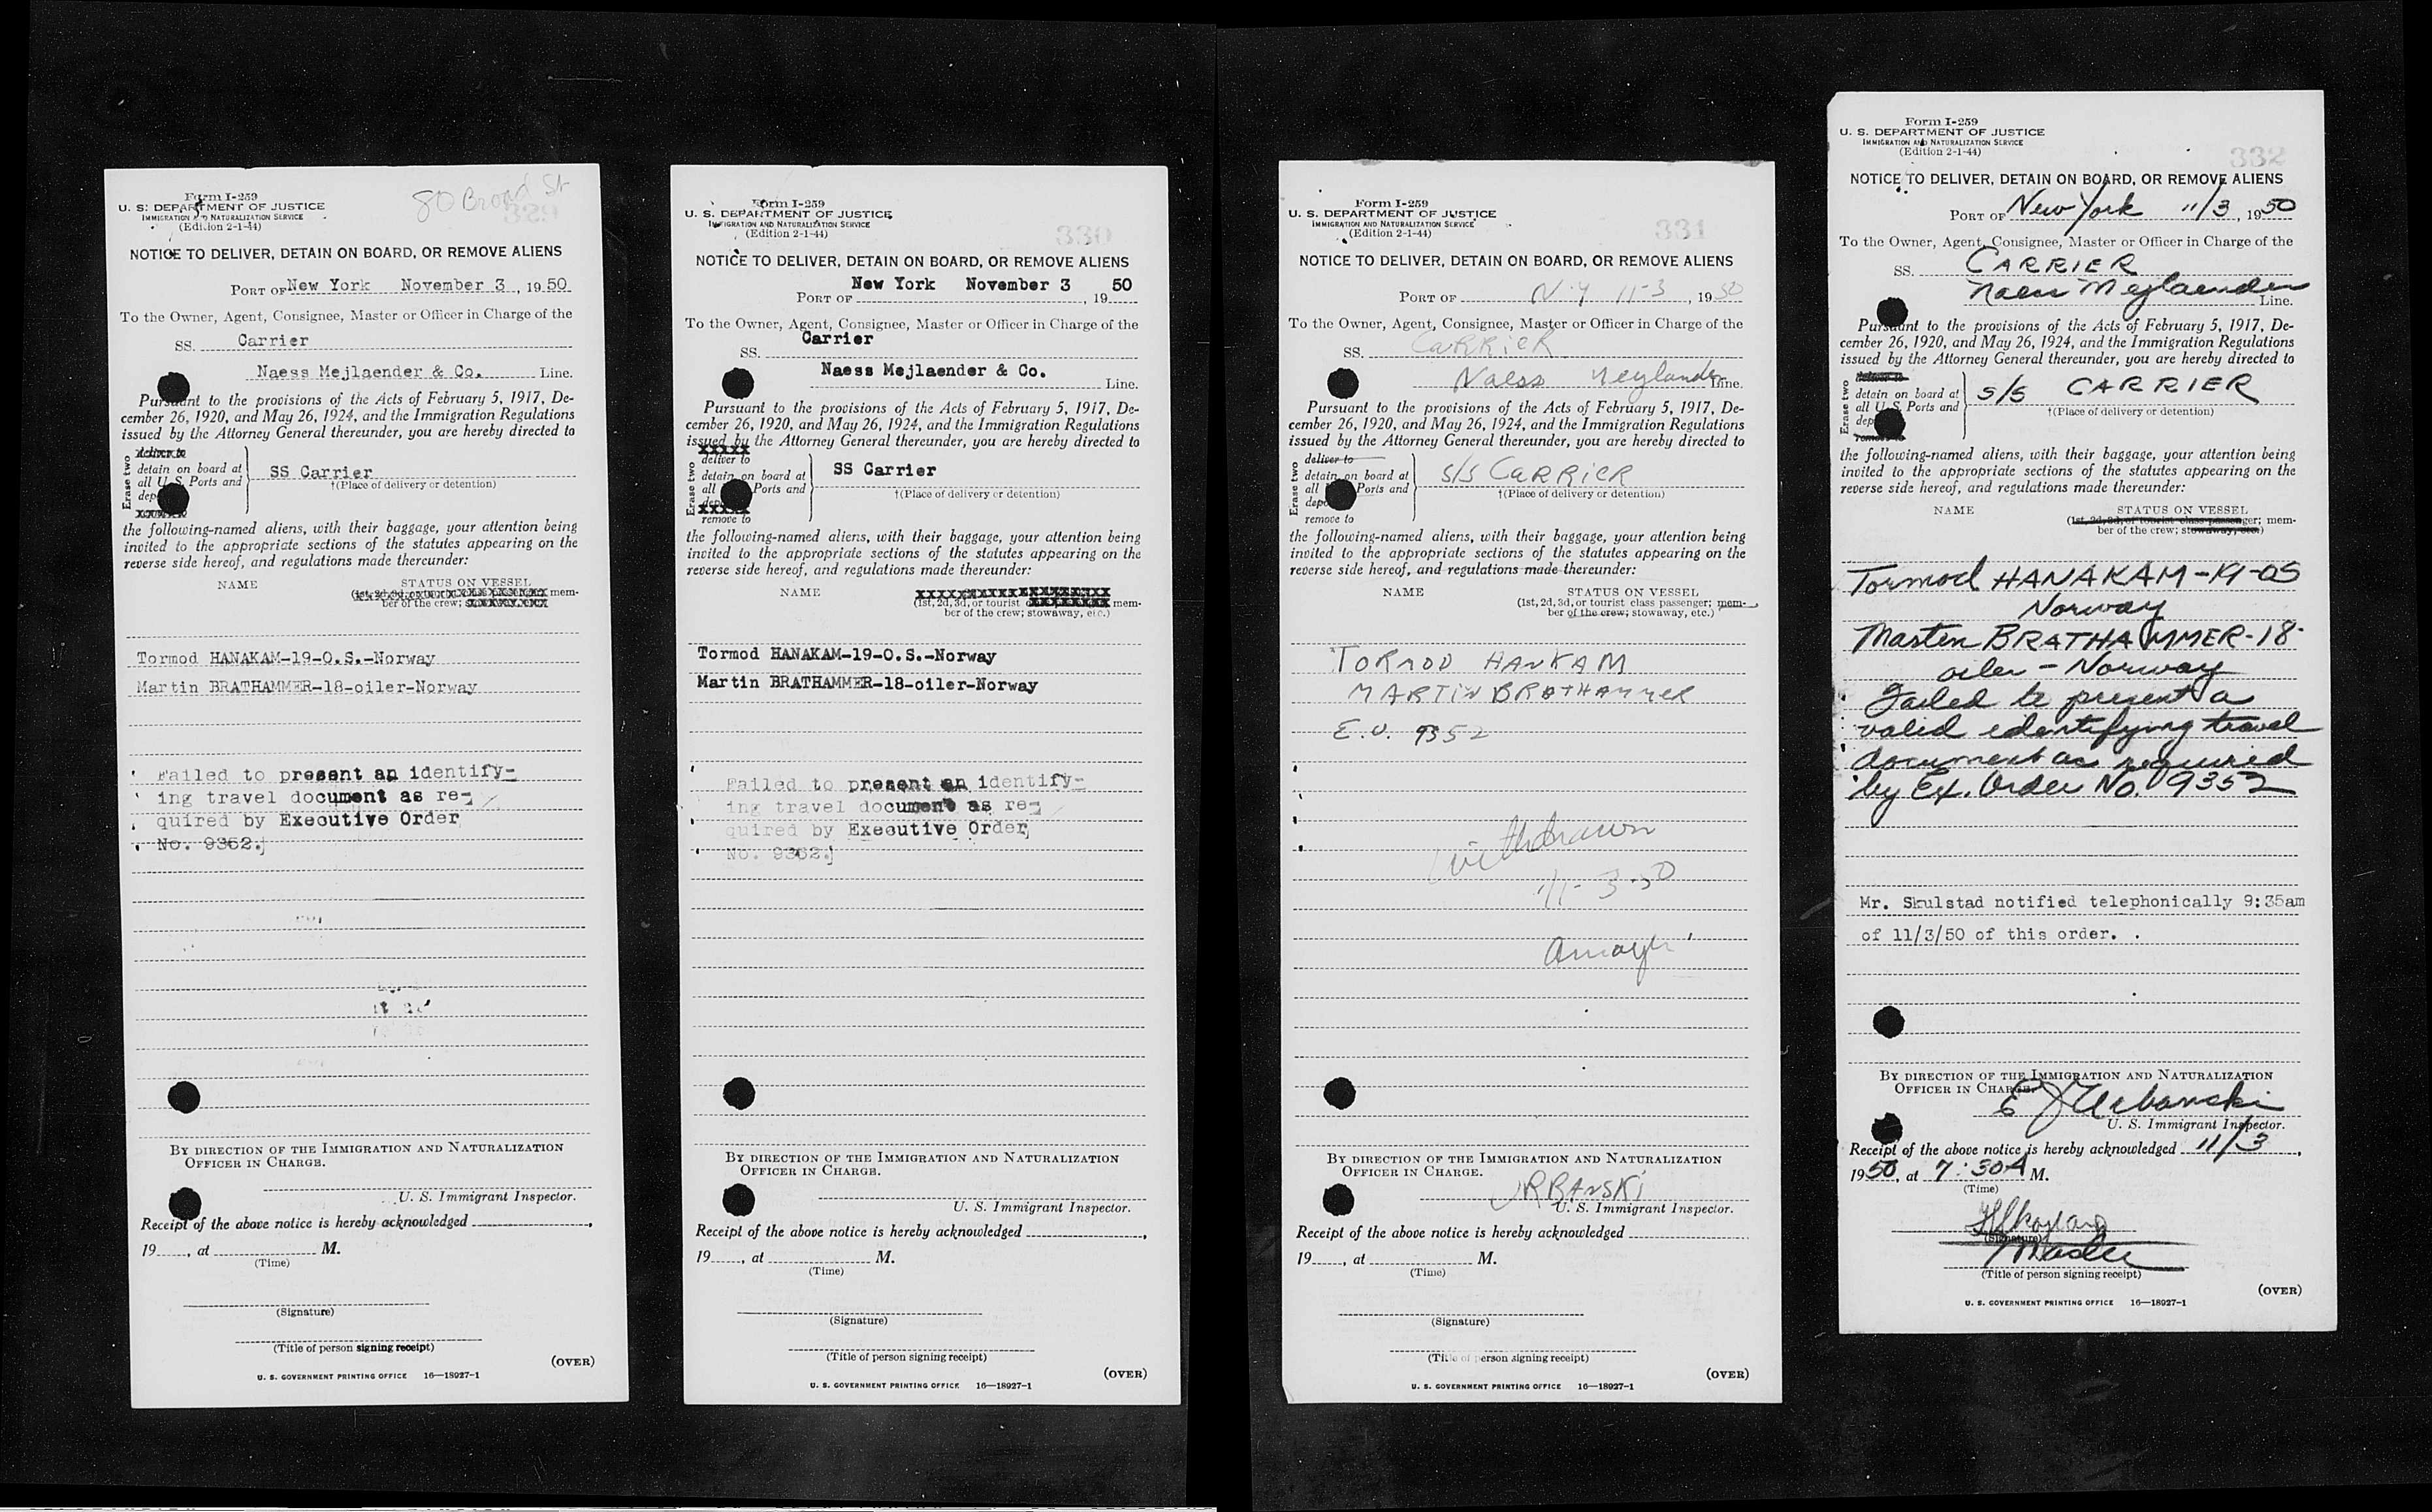 80 Broad St
Form I-259
329
U. S. DEPARTMENT OF JUSTICE
IMMIGRATION AND NATURALIZATION SERVICE
(Edition 2-1-44)
NOTICE TO DELIVER, DETAIN ON BOARD, OR REMOVE ALIENS
PORT OF New York November 3, 1950
To the Owner, Agent, Consignee, Master or Officer in Charge of the
SS. Carrier
Naess Mejlaender & Co. Line.
Pursuant to the provisions of the Acts of February 5, 1917, De-
cember 26, 1920, and May 26, 1924, and the Immigration Regulations
issued by the Attorney General thereunder, you are hereby directed to
Erase two
deliver to
detain on board at
all U. S. Ports and
SS Carrier
†(Place of delivery or detention)
the following-named aliens, with their baggage, your attention being
invited to the appropriate sections of the statutes appearing on the
reverse side hereof, and regulations made thereunder:
NAME STATUS ON VESSEL
mem-
ber of the crew;
Tormod HANAKAM-19-O.S.-Norway
Martin BRATHAMMER-18-oiler-Norway
Failed to present an identify-
ing travel document as re-
quired by Executive Order
No. 9352.
BY DIRECTION OF THE IMMIGRATION AND NATURALIZATION
OFFICER IN CHARGE.
U. S. Immigrant Inspector.
Receipt of the above notice is hereby acknowledged
19____, at ____ M.
(Time)
(Signature)
(Title of person signing receipt)
(OVER)
U. S. GOVERNMENT PRINTING OFFICE 16—18927-1
Form I-259
U. S. DEPARTMENT OF JUSTICE
IMMIGRATION AND NATURALIZATION SERVICE
(Edition 2-1-44)
330
NOTICE TO DELIVER, DETAIN ON BOARD, OR REMOVE ALIENS
New York November 3 50
PORT OF ____, 19____
To the Owner, Agent, Consignee, Master or Officer in Charge of the
Carrier
SS.
Naess Mejlaender & Co.
Line.
Pursuant to the provisions of the Acts of February 5, 1917, De-
cember 26, 1920, and May 26, 1924, and the Immigration Regulations
issued by the Attorney General thereunder, you are hereby directed to
XXXXX
Erase two
deliver to
detain on board at
all Ports and
XXXXX
remove to
SS Carrier
†(Place of delivery or detention)
the following-named aliens, with their baggage, your attention being
invited to the appropriate sections of the statutes appearing on the
reverse side hereof, and regulations made thereunder:
NAME
(1st, 2d, 3d, or tourist mem-
ber of the crew; stowaway, etc.)
Tormod HANAKAM-19-O.S.-Norway
Martin BRATHAMMER-18-oiler-Norway
Failed to present an identify-
ing travel document as re-
quired by Executive Order
No. 9352.
BY DIRECTION OF THE IMMIGRATION AND NATURALIZATION
OFFICER IN CHARGE.
U. S. Immigrant Inspector.
Receipt of the above notice is hereby acknowledged
19____, at ____ M.
(Time)
(Signature)
(Title of person signing receipt)
(OVER)
U. S. GOVERNMENT PRINTING OFFICE 16—18927-1
Form I-259
U. S. DEPARTMENT OF JUSTICE
IMMIGRATION AND NATURALIZATION SERVICE
(Edition 2-1-44)
331
NOTICE TO DELIVER, DETAIN ON BOARD, OR REMOVE ALIENS
PORT OF N.Y 11-3, 1950
To the Owner, Agent, Consignee, Master or Officer in Charge of the
SS. CARRIER
Naess Meylander Line.
Pursuant to the provisions of the Acts of February 5, 1917, De-
cember 26, 1920, and May 26, 1924, and the Immigration Regulations
issued by the Attorney General thereunder, you are hereby directed to
Erase two
deliver to
detain on board at
all Ports and
remove to
S/S CARRIER
†(Place of delivery or detention)
the following-named aliens, with their baggage, your attention being
invited to the appropriate sections of the statutes appearing on the
reverse side hereof, and regulations made thereunder:
NAME STATUS ON VESSEL
(1st, 2d, 3d, or tourist class passenger; mem-
ber of the crew; stowaway, etc.)
TORMOD HANKAM
MARTIN BRATHAMMER
E.O. 9352
Withdrawn
11-3-50
BY DIRECTION OF THE IMMIGRATION AND NATURALIZATION
OFFICER IN CHARGE.
URBANSKI
U. S. Immigrant Inspector.
Receipt of the above notice is hereby acknowledged
19____, at ____ M.
(Time)
(Signature)
(Title of person signing receipt)
(OVER)
U. S. GOVERNMENT PRINTING OFFICE 16—18927-1
Form I-259
U. S. DEPARTMENT OF JUSTICE
IMMIGRATION AND NATURALIZATION SERVICE
(Edition 2-1-44)
332
NOTICE TO DELIVER, DETAIN ON BOARD, OR REMOVE ALIENS
PORT OF New York 11/3, 1950
To the Owner, Agent, Consignee, Master or Officer in Charge of the
SS. CARRIER
Naess Mejlaender
Line.
Pursuant to the provisions of the Acts of February 5, 1917, De-
cember 26, 1920, and May 26, 1924, and the Immigration Regulations
issued by the Attorney General thereunder, you are hereby directed to
Erase two
deliver to
detain on board at
all U. S. Ports and
remove to
S/S CARRIER
†(Place of delivery or detention)
the following-named aliens, with their baggage, your attention being
invited to the appropriate sections of the statutes appearing on the
reverse side hereof, and regulations made thereunder:
NAME STATUS ON VESSEL
(1st, 2d, 3d, or tourist class passenger; mem-
ber of the crew; stowaway, etc.)
Tormod HANAKAM-19-OS
Norway
Marten BRATHAMMER-18-
oiler - Norway
Failed to present a
valid identifying travel
document as required
by Ex. Order No. 9352
Mr. Skulstad notified telephonically 9:35am
of 11/3/50 of this order.
BY DIRECTION OF THE IMMIGRATION AND NATURALIZATION
OFFICER IN CHARGE.
E J Urbanski
U. S. Immigrant Inspector.
Receipt of the above notice is hereby acknowledged 11/3,
1950, at 7:30 A M.
(Time)
(Signature)
Master
(Title of person signing receipt)
(OVER)
U. S. GOVERNMENT PRINTING OFFICE 16—18927-1